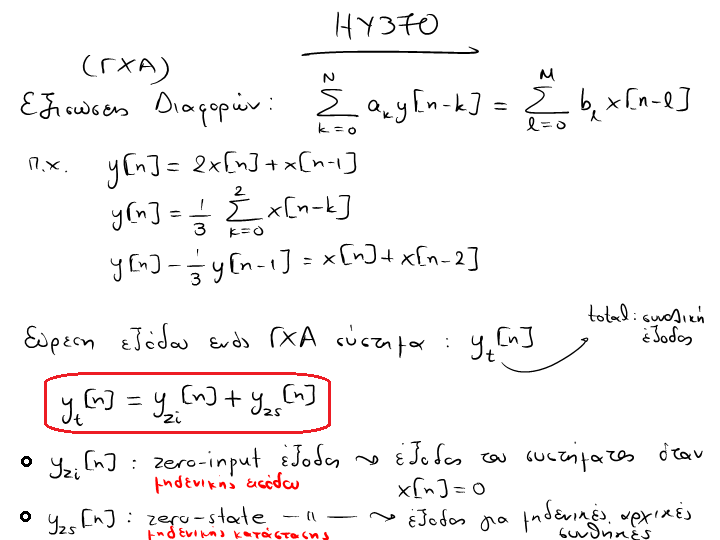 ΗΥ370
(ΓΧΑ)
Εξισώσεις Διαφορών: \sum_{k=0}^{N} a_k y[n-k] = \sum_{l=0}^{M} b_l x[n-l]
π.χ. y[n] = 2x[n] + x[n-1]
y[n] = \frac{1}{3} \sum_{k=0}^{2} x[n-k]
y[n] - \frac{1}{3} y[n-1] = x[n] + x[n-2]
Εύρεση εξόδου ενός ΓΧΑ σύστημα : y_t[n]
total: συνολική
έξοδος
y_t[n] = y_{zi}[n] + y_{zs}[n]
y_{zi}[n] : zero-input έξοδος ⇝ έξοδος του συστήματος όταν
μηδενικής εισόδου
x[n] = 0
y_{zs}[n] : zero-state —〃— ⇝ έξοδος για μηδενικές αρχικές
μηδενικής κατάστασης
συνθήκες